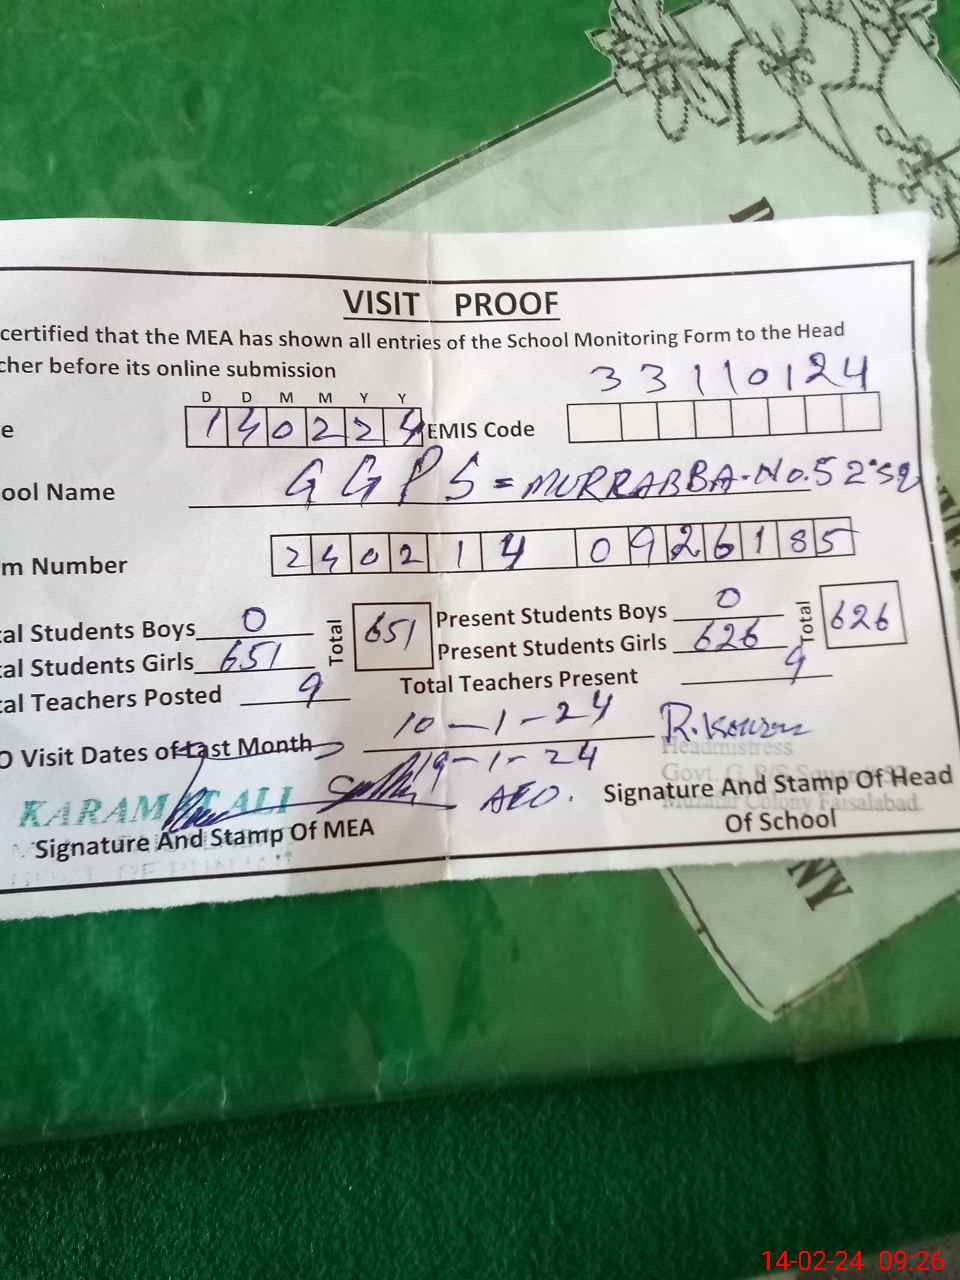 VISIT PROOF
certified that the MEA has shown all entries of the School Monitoring Form to the Head
cher before its online submission
33110124
D D M M Y Y
e 140224 EMIS Code
ool Name GGPS = MURRABBA.No.52'sq
m Number 2402140926185
al Students Boys 0 Total 651 Present Students Boys 0 Total 626
al Students Girls 651 Present Students Girls 626
al Teachers Posted 9 Total Teachers Present 9
O Visit Dates of Last Month 10-1-24
19-1-24
AEO.
R.Kousar
Headmistress
Govt. G
Colony Faisalabad
KARAM ALI
Signature And Stamp Of MEA
Signature And Stamp Of Head
Of School
NY
14-02-24 09:26